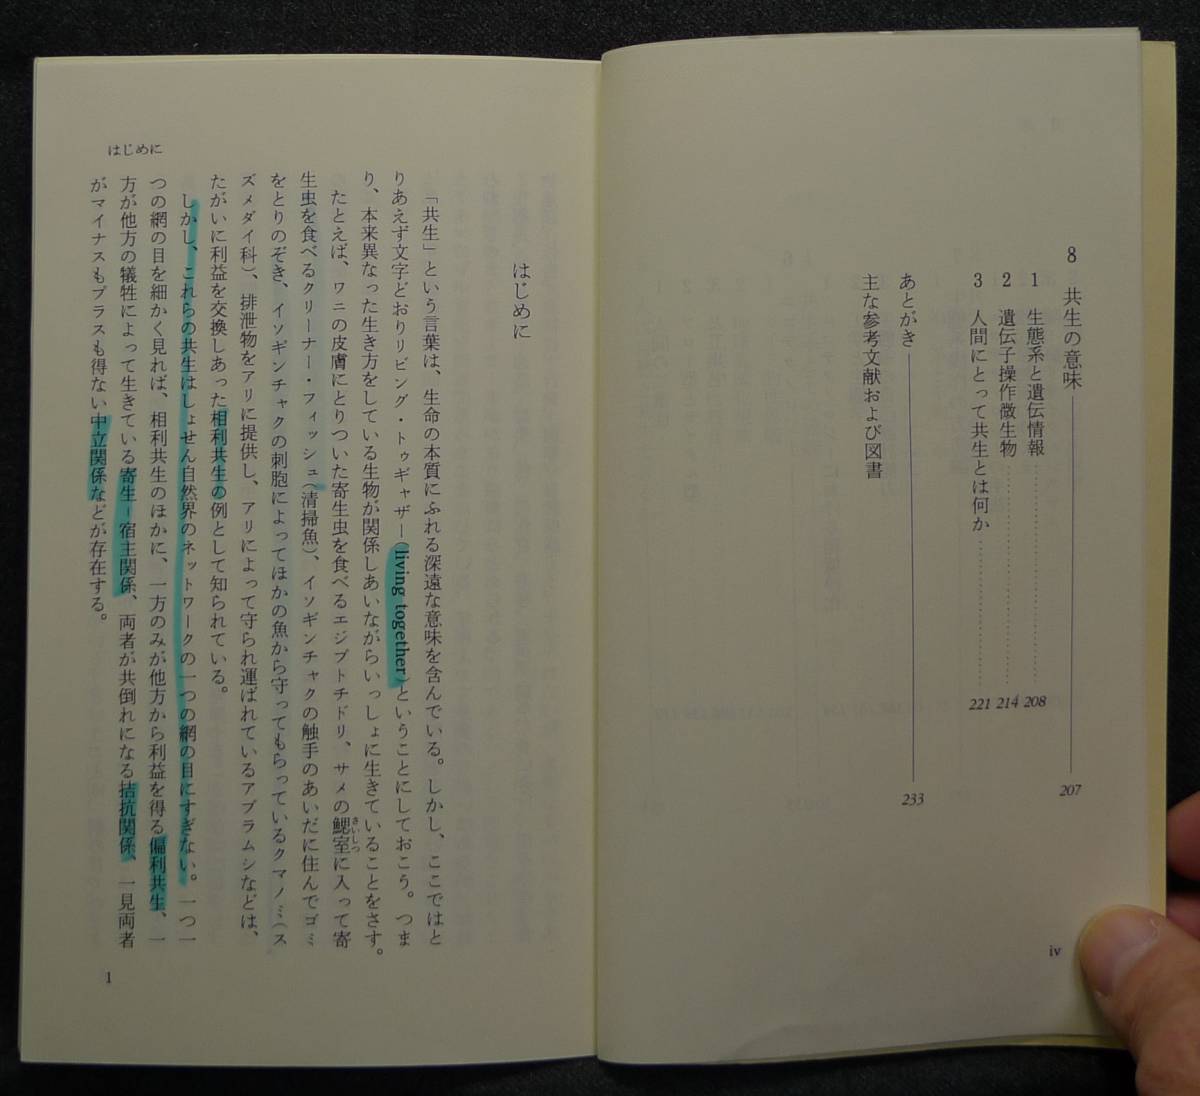 8 共生の意味 207
1 生態系と遺伝情報 208
2 遺伝子操作微生物 214
3 人間にとって共生とは何か 221
あとがき 233
主な参考文献および図書
iv
はじめに
はじめに
「共生」という言葉は、生命の本質にふれる深遠な意味を含んでいる。しかし、ここではと
りあえず文字どおりリビング・トゥギャザー(living together)ということにしておこう。つま
り、本来異なった生き方をしている生物が関係しあいながらいっしょに生きていることをさす。
たとえば、ワニの皮膚にとりついた寄生虫を食べるエジプトチドリ、サメの鰓室きいしつに入って寄
生虫を食べるクリーナー・フィッシュ(清掃魚)、イソギンチャクの触手のあいだに住んでゴミ
をとりのぞき、イソギンチャクの刺胞によってほかの魚から守ってもらっているクマノミ(ス
ズメダイ科)、排泄物をアリに提供し、アリによって守られ運ばれているアブラムシなどは、
たがいに利益を交換しあった相利共生の例として知られている。
しかし、これらの共生はしょせん自然界のネットワークの一つの網の目にすぎない。一つ一
つの網の目を細かく見れば、相利共生のほかに、一方のみが他方から利益を得る偏利共生、一
方が他方の犠牲によって生きている寄生-宿主関係、両者が共倒れになる拮抗関係、一見両者
がマイナスもプラスも得ない中立関係などが存在する。
1